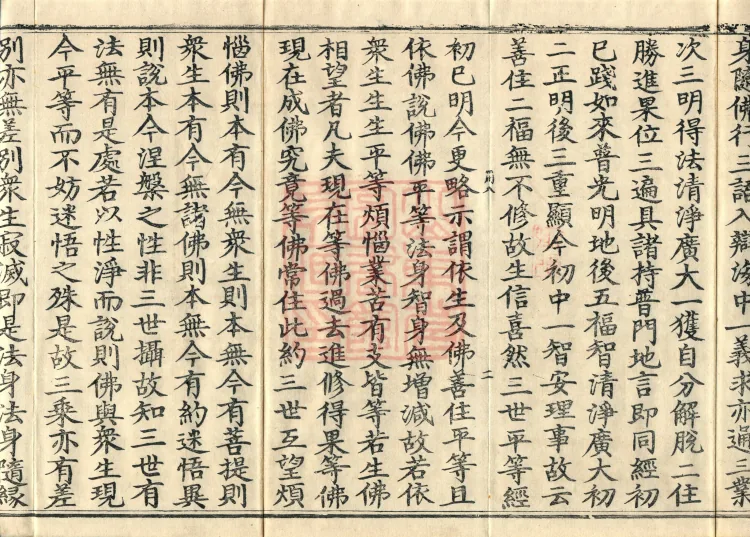 身隱佛行三語入辯法中一義求亦通三業
次三明得法清淨廣大一獲自分解脫二住
勝進果位三遍具諸持普門地言即同經初
已踐如來普光明地後五福智清淨廣大初
二正明後三重顯今初中一智安理事故云
善住二福無不修故生信喜然三世平等經
二
初已明今更略示謂依生及佛善住平等且
依佛說佛佛平等法身智身無增減故若依
衆生生生平等煩惱業苦有支皆等若生佛
相望者凡夫現在等佛過去進修得果等佛
現在成佛究竟等佛常住此約三世互望煩
惱佛則本有今無衆生則本無今有菩提則
衆生本有今無諸佛則本無今有約迷悟異
則說本今涅槃之性非三世攝故知三世有
法無有是處若以性淨而說則佛與衆生現
今平等而不妨迷悟之殊是故三乘亦有差
別亦無差別衆生寂滅即是法身法身隨緣